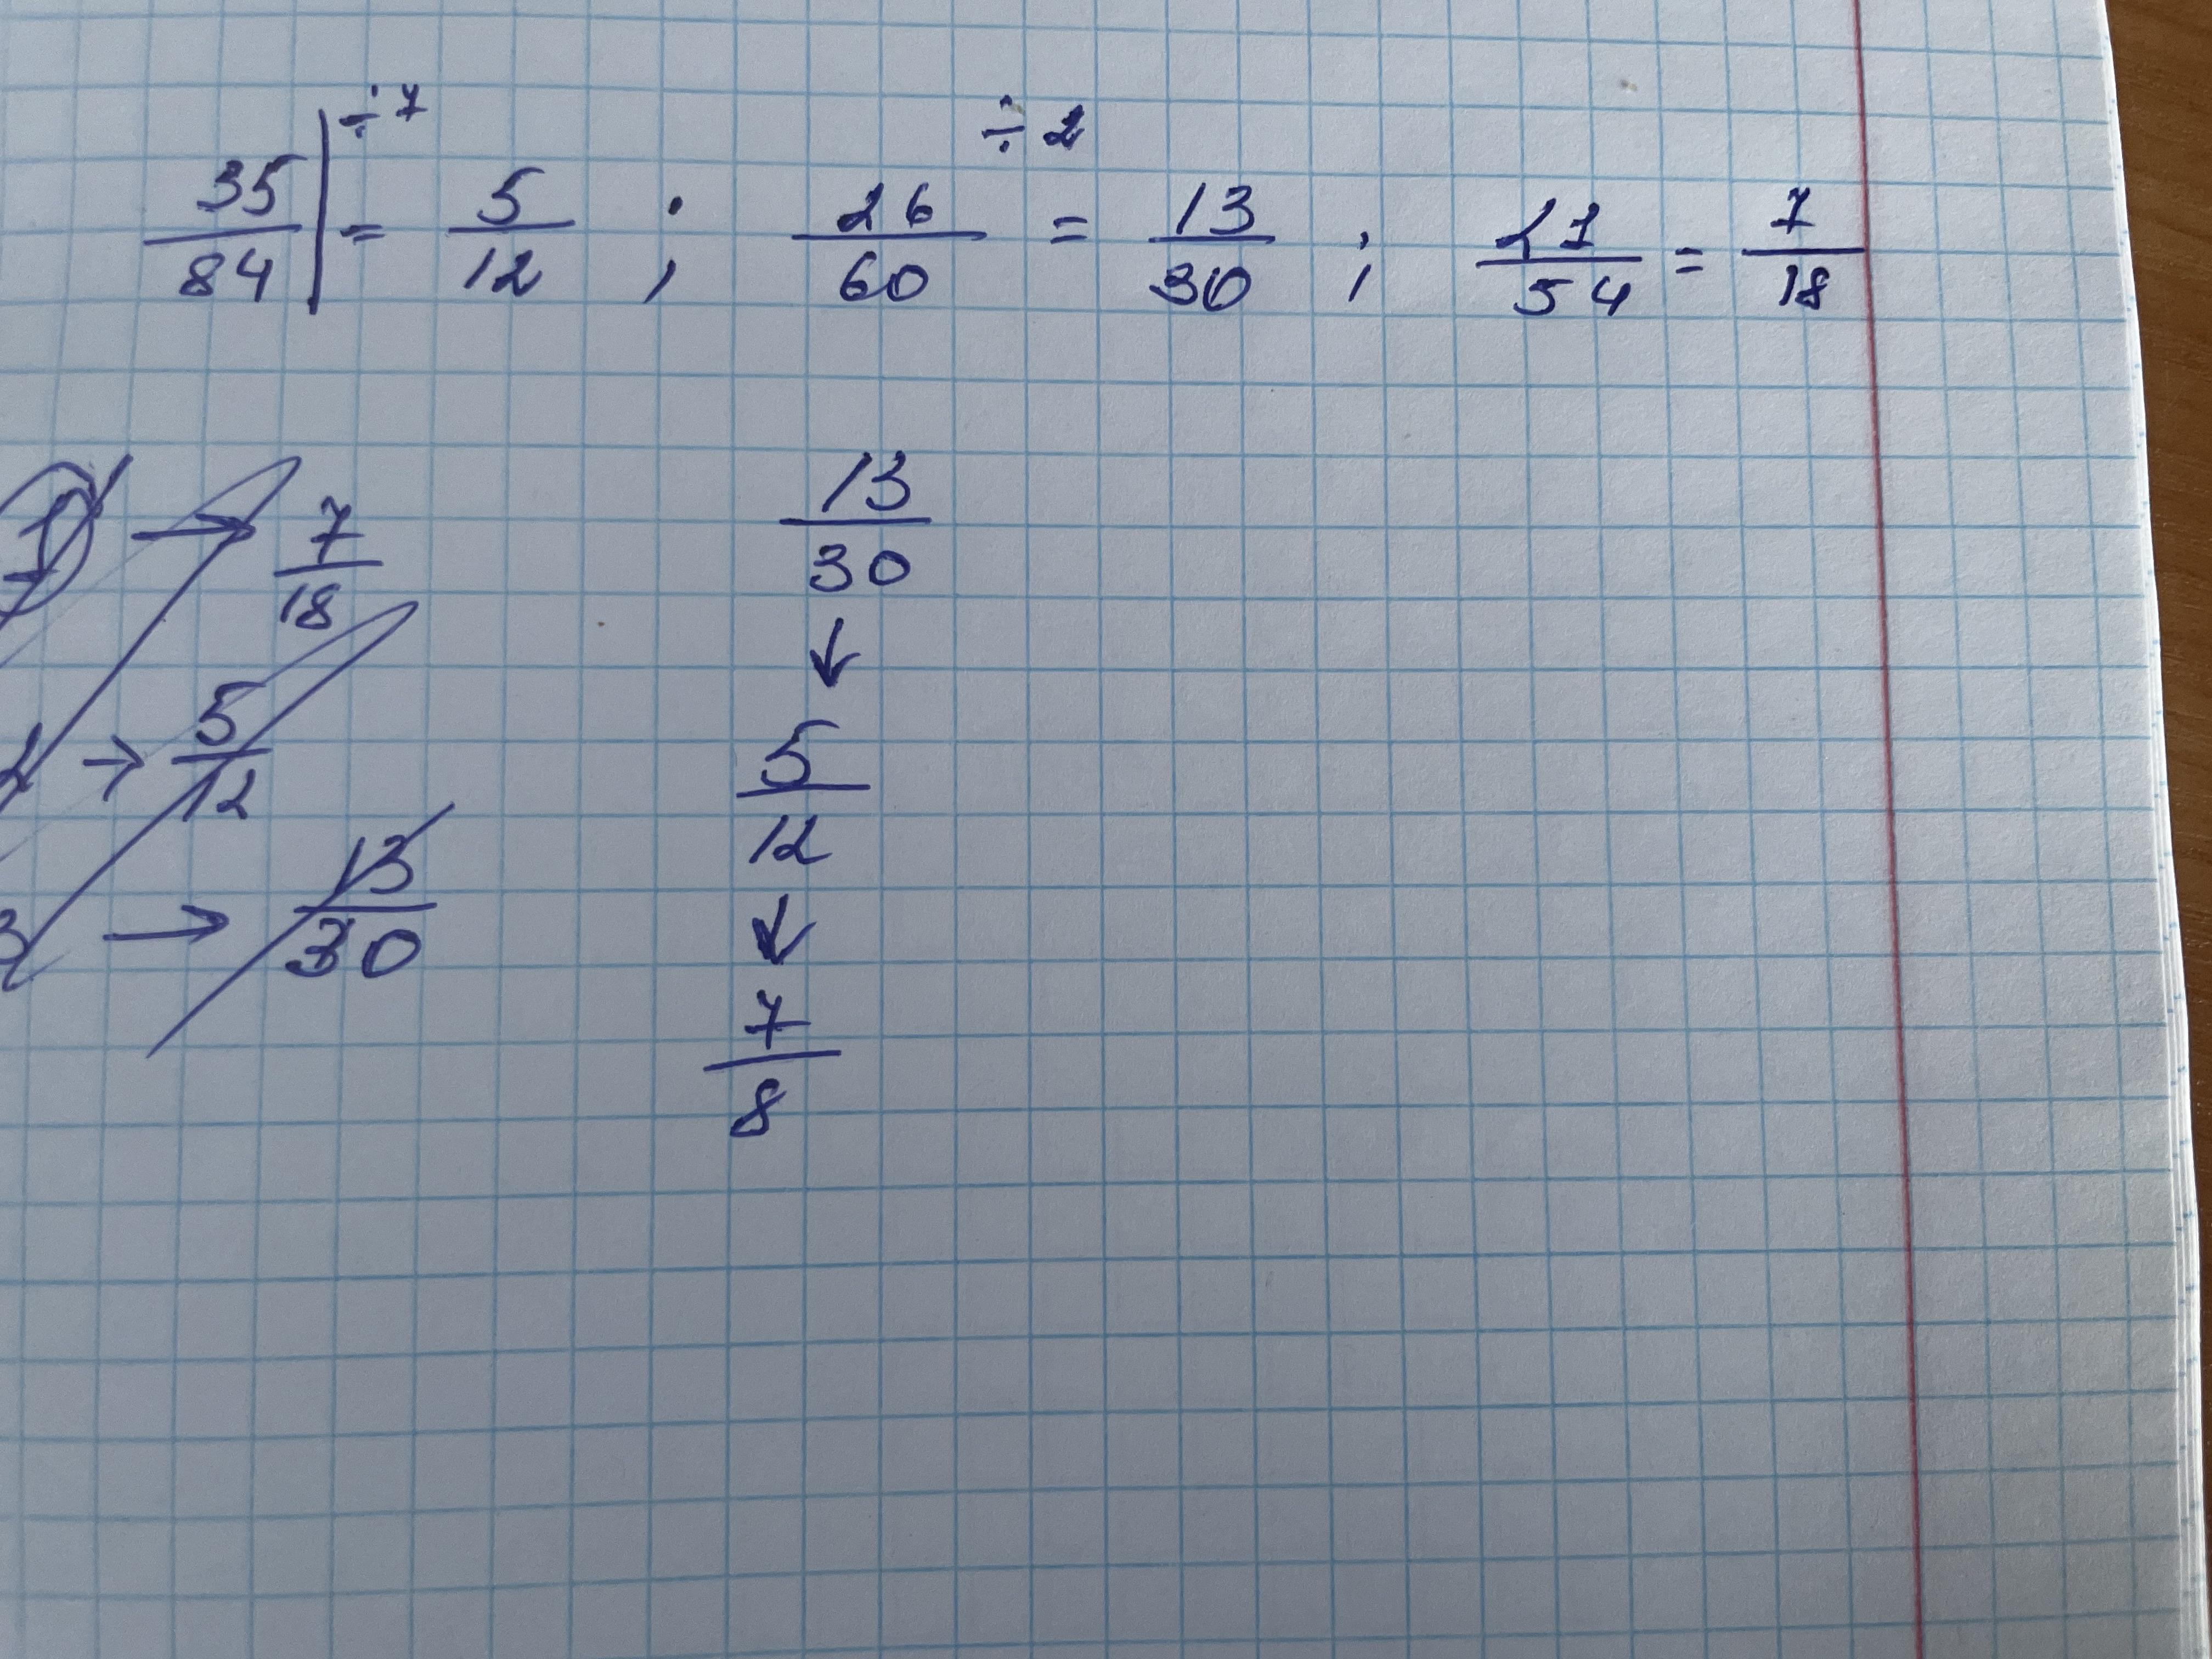 35/84 | ÷7 = 5/12 ; 26/60 ÷2 = 13/30 ; 21/54 = 7/18
1 → 7/18
2 → 5/12
3 → 13/30
13/30
↓
5/12
↓
7/8